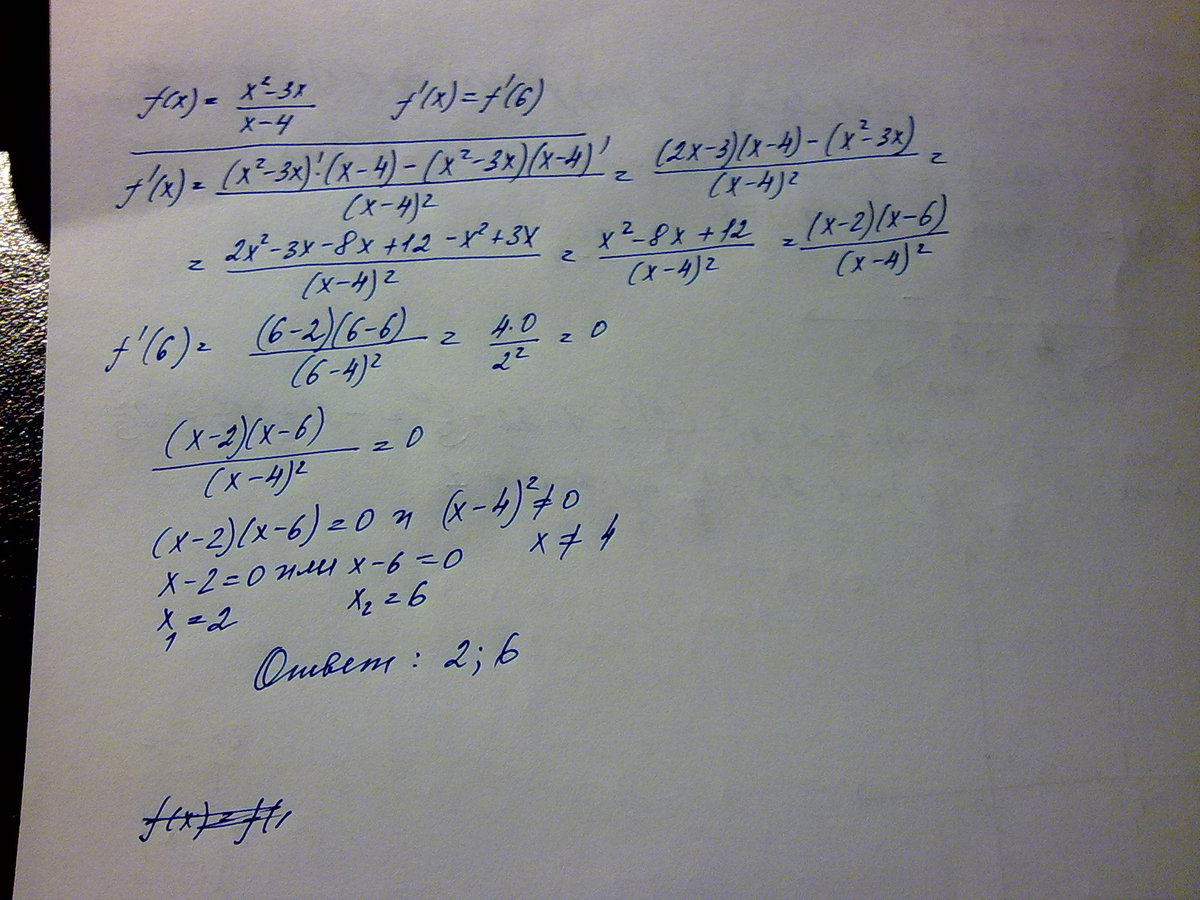 f(x) = (x² - 3x)/(x - 4)   f'(x) = f'(6)
f'(x) = ((x² - 3x)'·(x - 4) - (x² - 3x)(x - 4)')/(x - 4)² = ((2x - 3)(x - 4) - (x² - 3x))/(x - 4)² =
= (2x² - 3x - 8x + 12 - x² + 3x)/(x - 4)² = (x² - 8x + 12)/(x - 4)² = ((x - 2)(x - 6))/(x - 4)²
f'(6) = ((6 - 2)(6 - 6))/(6 - 4)² = (4·0)/2² = 0
((x - 2)(x - 6))/(x - 4)² = 0
(x - 2)(x - 6) = 0 и (x - 4)² ≠ 0
x - 2 = 0 или x - 6 = 0   x ≠ 4
x₁ = 2   x₂ = 6
Ответ: 2; 6
f(x) = f(